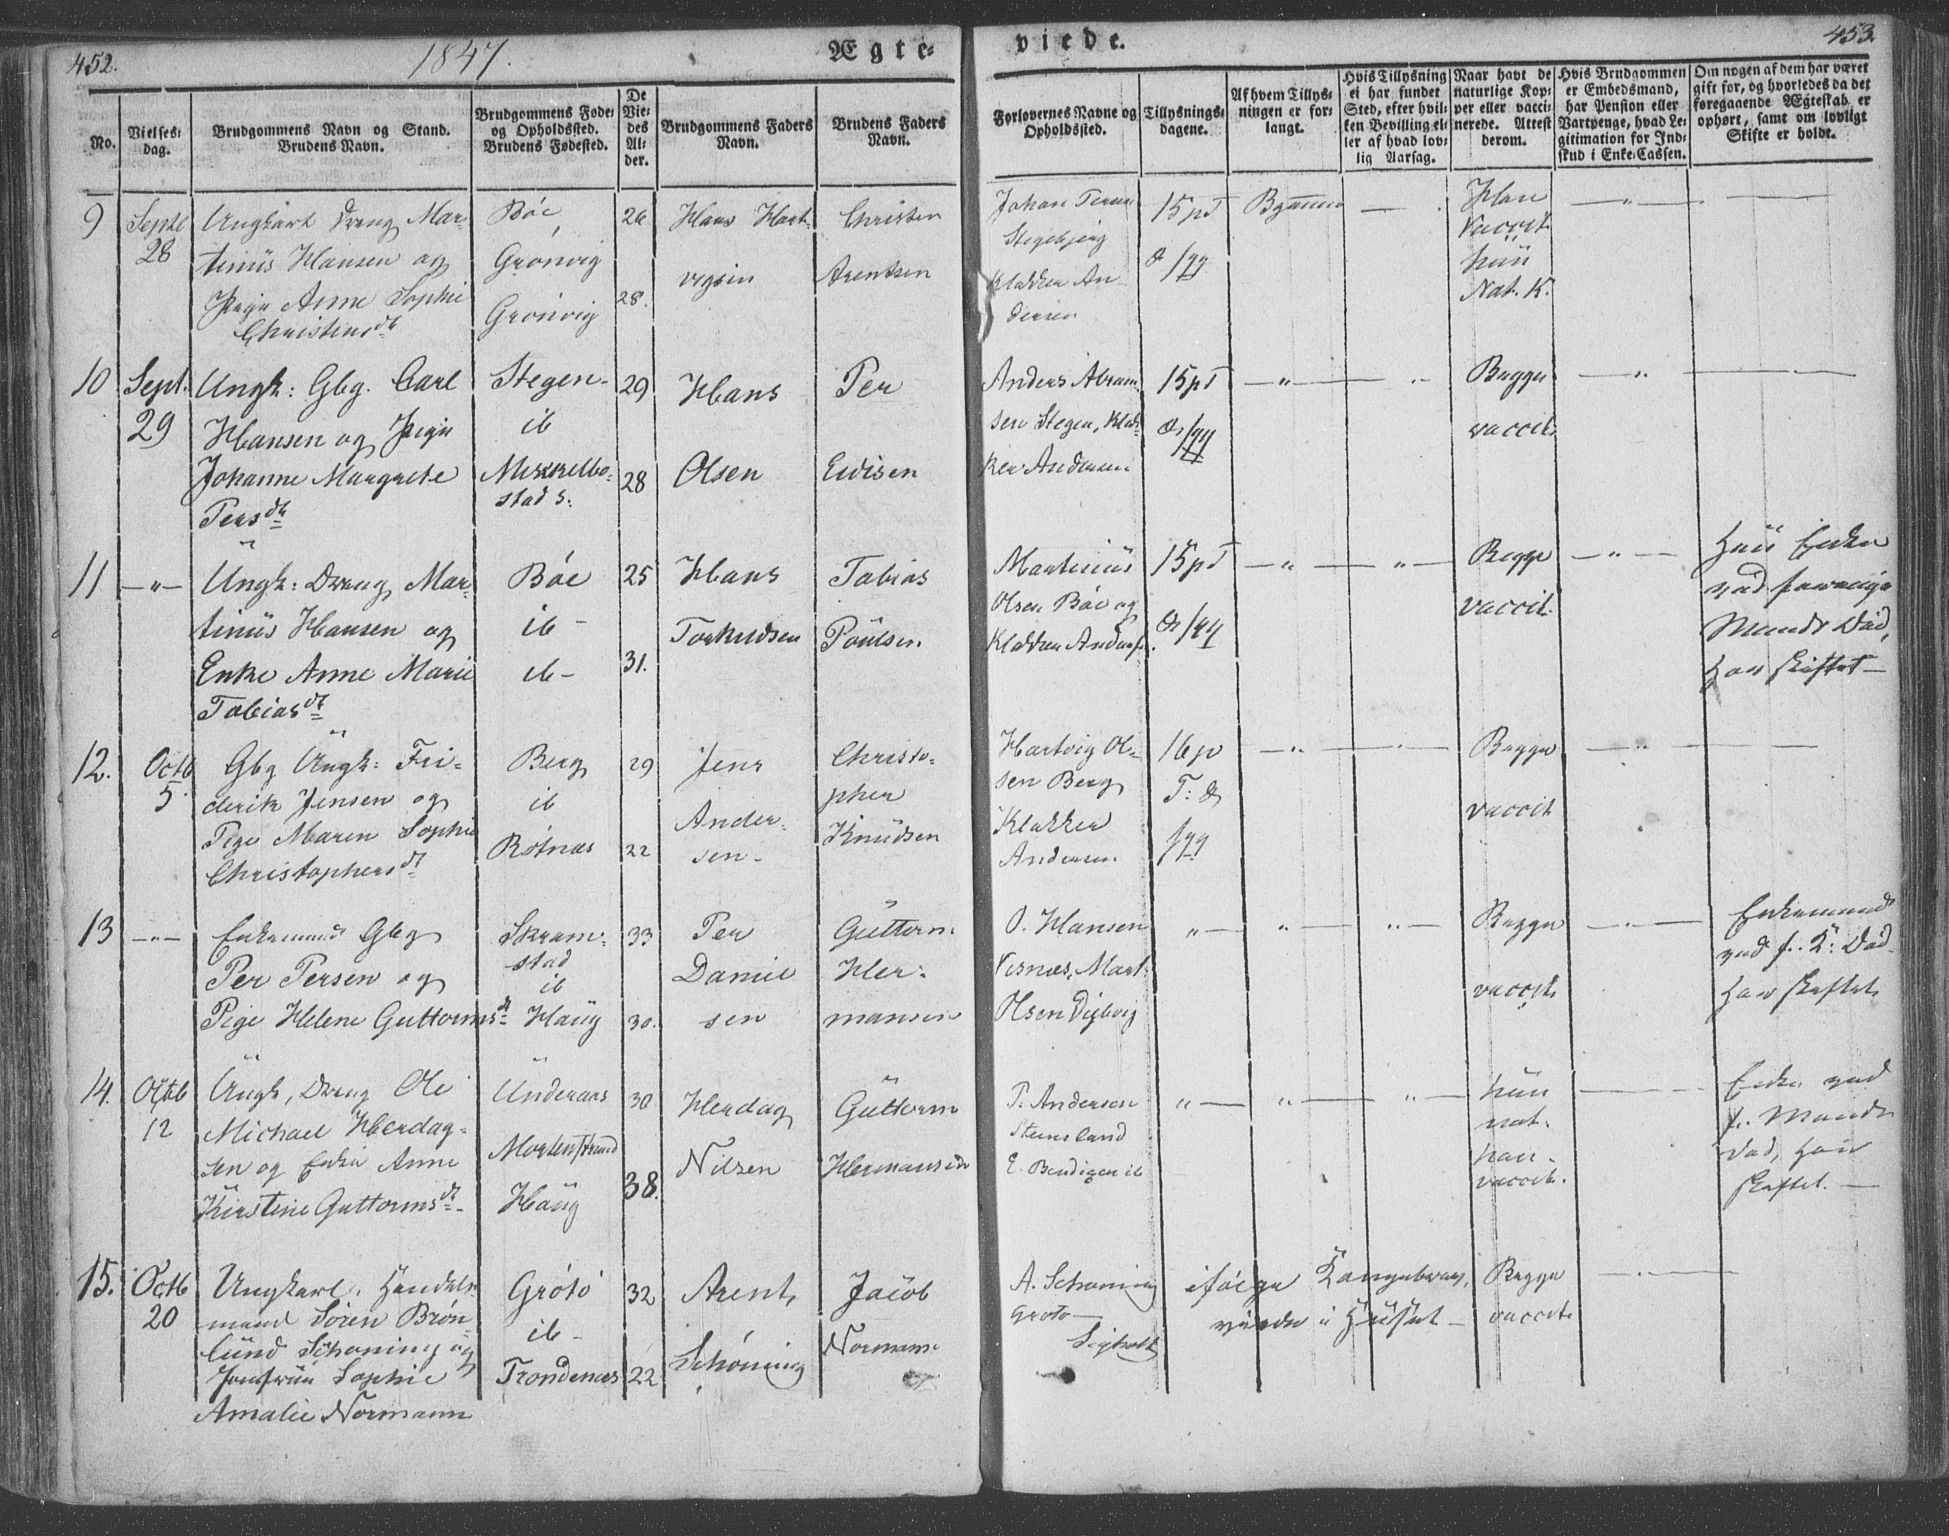 452.
1847.
Ægte-
viede.
453.
No.
Vielses-
dag.
Brudgommens Navn og Stand.
Brudens Navn.
Brudgommens Føde-
og Opholdssted.
Brudens Fødested.
De
Vie-
des
Al-
der.
Brudgommens Faders
Navn.
Brudens Faders
Navn.
Forlovernes Navne og
Opholdssted.
Tillysnings-
dagene.
Af hvem Tillys-
ningen er for-
langt.
Hvis Tillysning
ei har fundet
Sted, efter hvil-
ken Bevilling el-
ler af hvad lov-
lig Aarsag.
Naar havt de
naturlige Kop-
per eller vacci-
nerede. Attest
derom.
Hvis Brudgommen
er Embedsmand,
har Pension eller
Vartpenge, hvad Le-
gitimation for Ind-
skud i Enke-Cassen.
Om nogen af dem har været
gift før, og hvorledes da det
foregaaende Ægteskab er
ophørt, samt om lovligt
Skifte er holdt.
9
Septb
28
Ungkarl Dreng Mar-
tinus Hansen og
Pige Anne Sophie
Christensdt
Bøe
Grønvig
Grønvig
26
28.
Hans Hart-
vigsen
Christen
Arentsen
Johan
Klokker An-
dersen
15 p T
Han
Vaccit.
hun
Nat. K.
10
Sept.
29
Ungk: Gbg. Carl
Hansen og Pige
Johanne Margrete
Persdt
Stegen
ib
29
28
Hans
Olsen
Per
Anders Abram-
sen Stegen, Klok-
ker Andersen
15 p T
— " —
Begge
vaccit.
11
— " —
Ungk: Dreng Mar-
tinus Hansen og
Enke Anne Marie
Tobiasdt
Bøe
ib —
ib —
25
31.
Hans
Torkudsen
Tobias
Poulsen
Martinus
Olsen Bøe og
Klokker Anders.
15 p T
— " —
Begge
vaccit.
Hun Enke
ved forrige
Mands Død,
har skiftet —
12.
Octb
5
Gbg Ungk: Fri-
derik Jensen og
Pige Maren Sophie
Christophersdt
Berg
ib
Røtnes
29
22
Jens
Ander-
sen-
Christo-
pher
Knudsen
Hartvig Ol-
sen Berg
Klokker
Andersen
16 p
T:
— " —
Begge
vaccit
13
— " —
Enkemand Gbg
Per Persen og
Pige Helene Guttormsdt
Skram-
stad
ib
Haug
33
30.
Per
Daniel
sen
Guttorm
Her-
mansen
O. Hansen
Vesnæs, Mart.
Olsen
" —
Begge
vaccit.
Enkemand
ved f. K. Død
har skiftet.
14.
Octb
12
Ungk, Dreng Ole
Michael Herdag-
sen og Enke Anne
Kirstine Guttormsdt
Underaas
Mortenstrand
Haug
30
38.
Herdag
Nilsen
Guttorm
Hermansen
P. Andersen
Steensland
E. Bendigen ib
" —
hun
nat.
han-
vaccit.
Enke ved
f. Mands
Død, har
skiftet. —
15.
Octb
20
Ungkarl, Handels-
mand Søren Brøn-
lund Schøning og
Jomfrue Sophie
Amalie Normann
Grøtø
ib —
Trondenæs
32
22
Arent
Schøning
Jacob
Normann
A. Schøning
Grøtø —
ifølge Kongebrev,
viede i Huset —
Begge
vaccit.